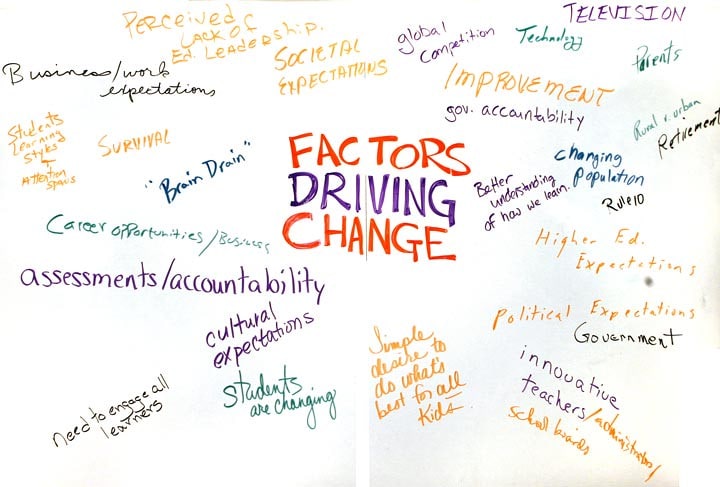 PERCEIVED
LACK OF
Ed. LEADERSHIP.
SOCIETAL
EXPECTATIONS
global
competition
Technology
TELEVISION
Parents
Business/work
expectations
IMPROVEMENT
gov. accountability
Rural v. urban
Retirement
Students
Learning
Styles
Attention
Spans
SURVIVAL
"Brain Drain"
FACTORS
DRIVING
CHANGE
Better
understanding
of how we learn.
changing
population
Rule 10
Career opportunities/Business
Higher Ed.
Expectations
assessments/accountability
cultural
expectations
Political Expectations
Government
Simple
desire to
do what's
best for all
Kids.
innovative
teachers/administrators/
school boards
Students
are changing
need to engage all
learners